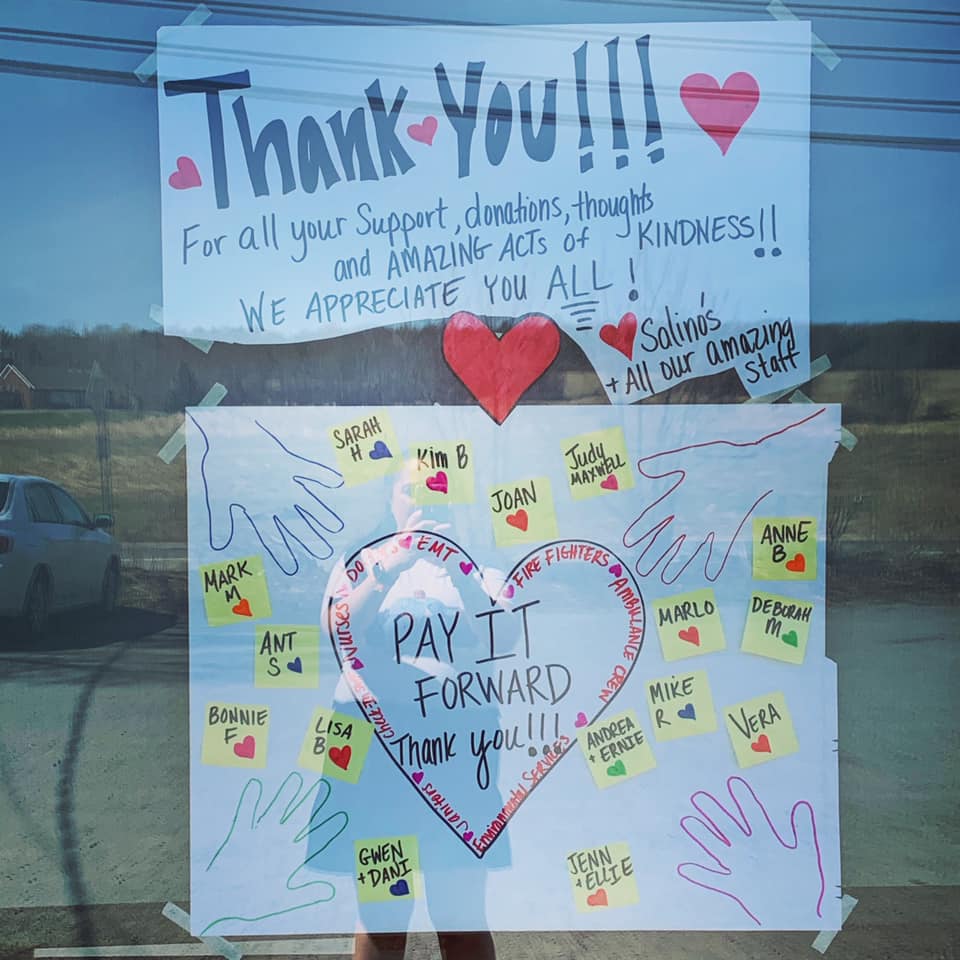 Thank You!!!
For all your Support, donations, thoughts
and AMAZING ACTs of KINDNESS!!
WE APPRECIATE YOU ALL!
Salino's
+ All our amazing
staff
SARAH
H
Kim B
JOAN
Judy
MAXWELL
ANNE
B
MARK
M
ANT
S
BONNIE
F
LISA
B
MARLO
DEBORAH
M
MIKE
R
VERA
ANDREA
+ ERNIE
GWEN
+ DANI
JENN
+ ELLIE
EMT
FIRE FIGHTERS
AMBULANCE CREW
Environmental Services
Janitors
Nurses
PAY IT
FORWARD
Thank you!!!